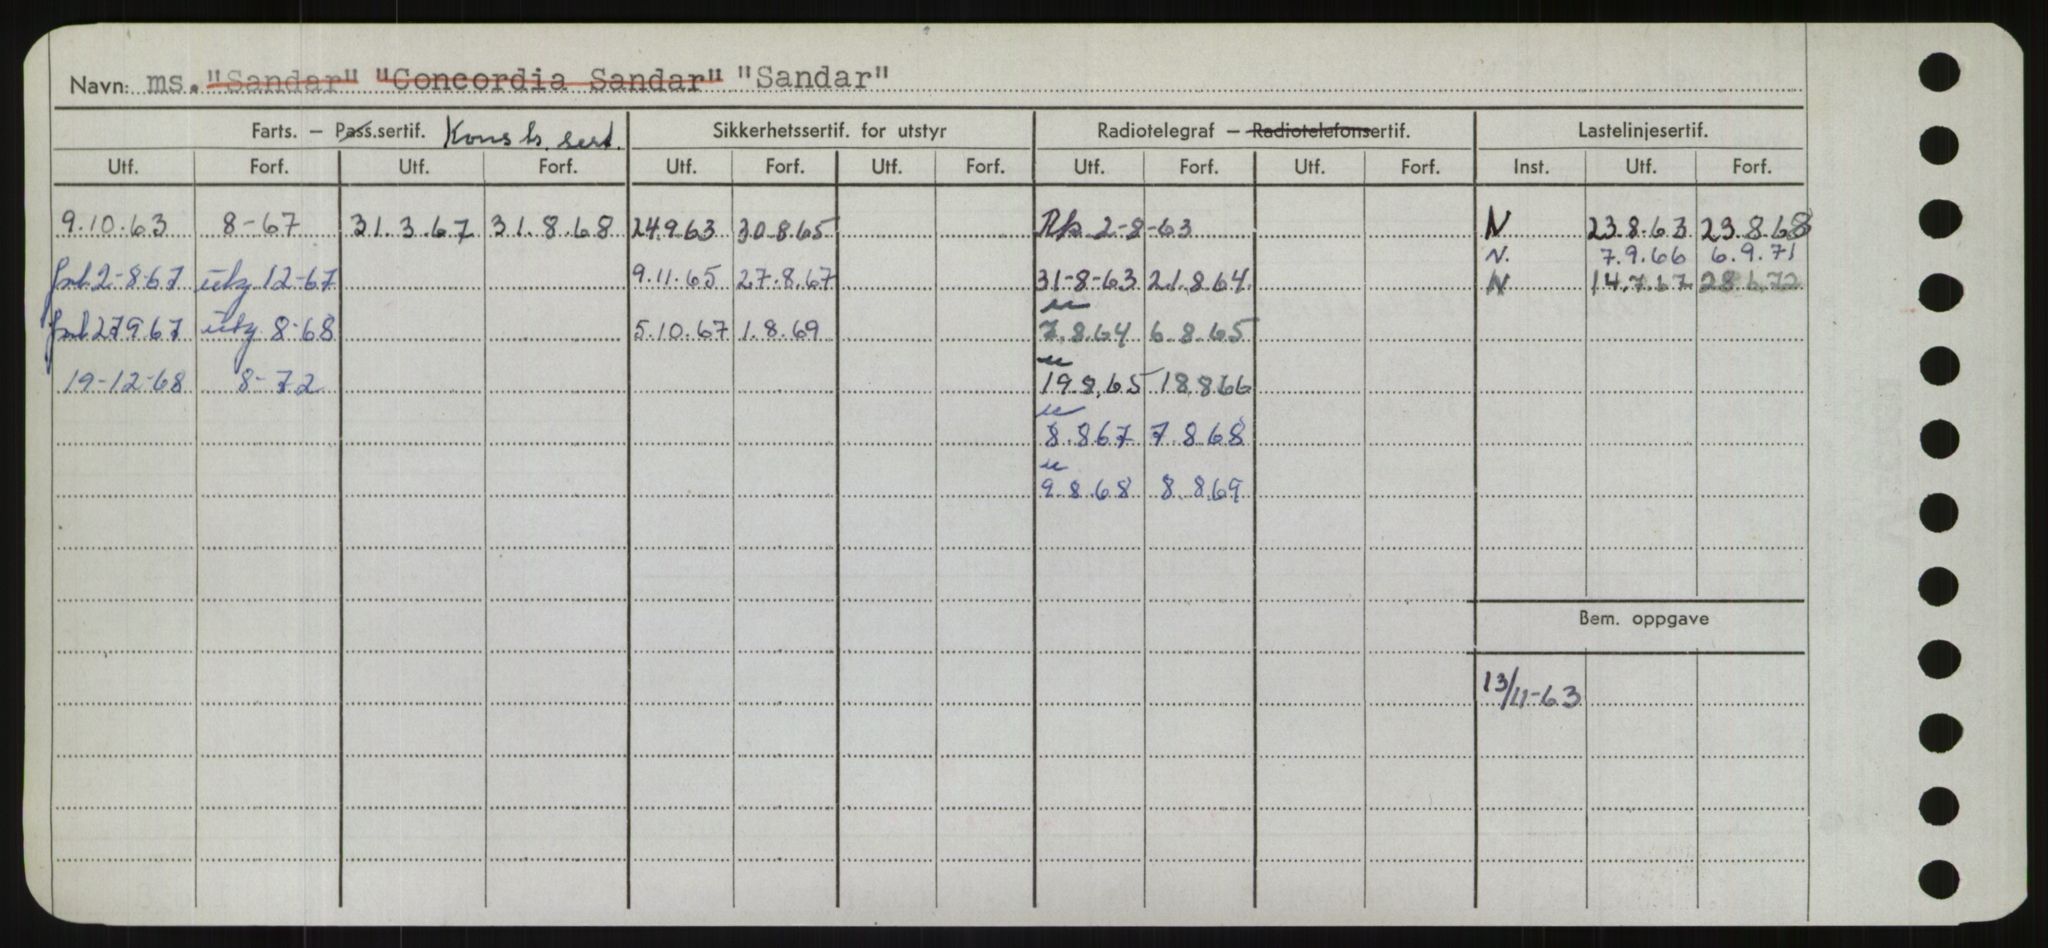 Navn: ms. "Sandar" "Concordia Sandar" "Sandar"
Farts. – Pass.sertif. Konstr. sert. Sikkerhetssertif. for utstyr Radiotelegraf – Radiotelefonsertif. Lastelinjesertif.
Utf. Forf. Utf. Forf. Utf. Forf. Utf. Forf. Utf. Forf. Utf. Forf. Inst. Utf. Forf.
9.10.63 8-67 31.3.67 31.8.68 24.9.63 30.8.65 2-8-63 N 23.8.63 23.8.68
N. 7.9.66 6.9.71
2-8-67 utg. 12-67 9.11.65 27.8.67 31-8-63 21.8.64. N 14.7.67 28.6.72
27.9.67 utg. 8-68 5.10.67 1.8.69 7.8.64 6.8.65
19-12-68 8-72 19.8.65 18.8.66
8.8.67 7.8.68
9.8.68 8.8.69
Bem. oppgave
13/11-63